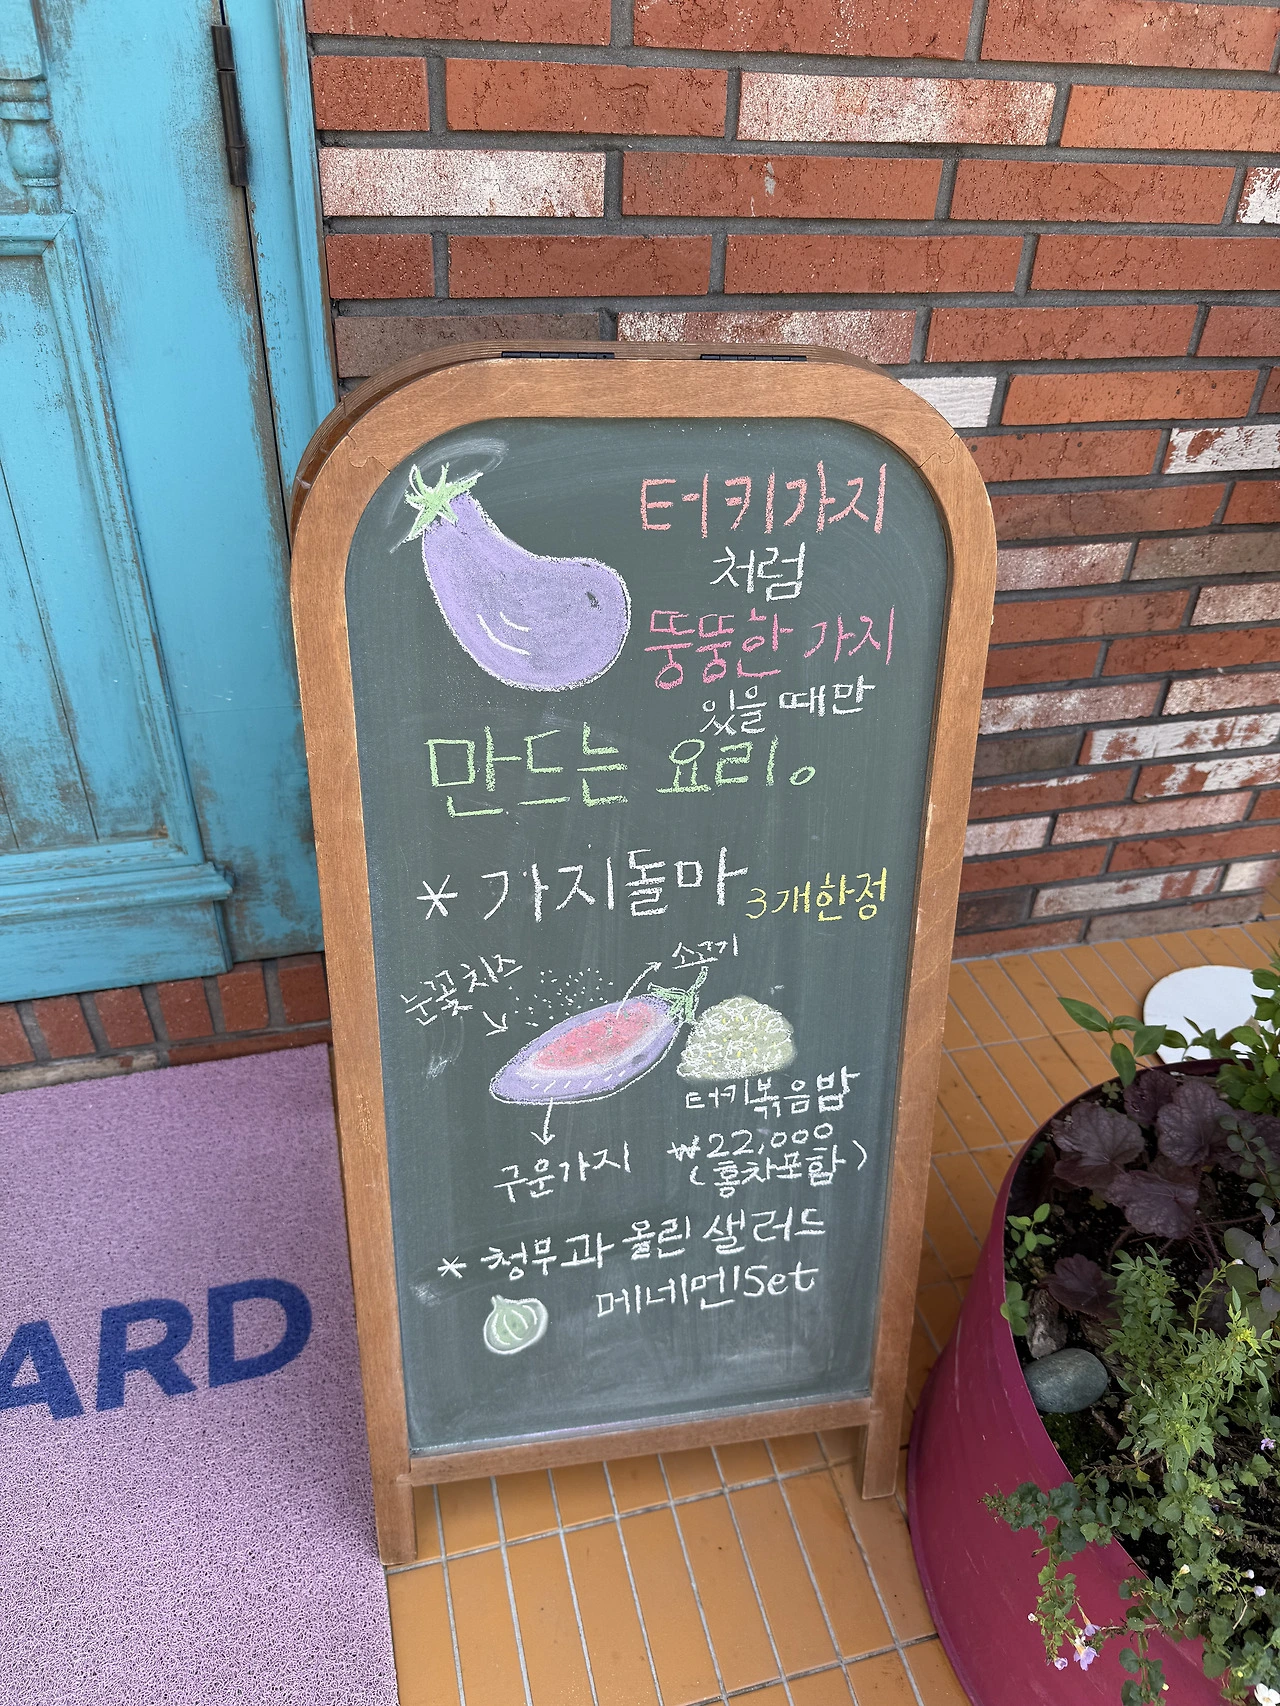 터키가지
처럼
뚱뚱한 가지
있을 때만
만드는 요리。
* 가지돌마 3개한정
눈꽃치즈
소고기
터키볶음밥
구운가지
₩22,000
(홍차포함)
* 청무과 올린 샐러드
메네멘Set
ARD